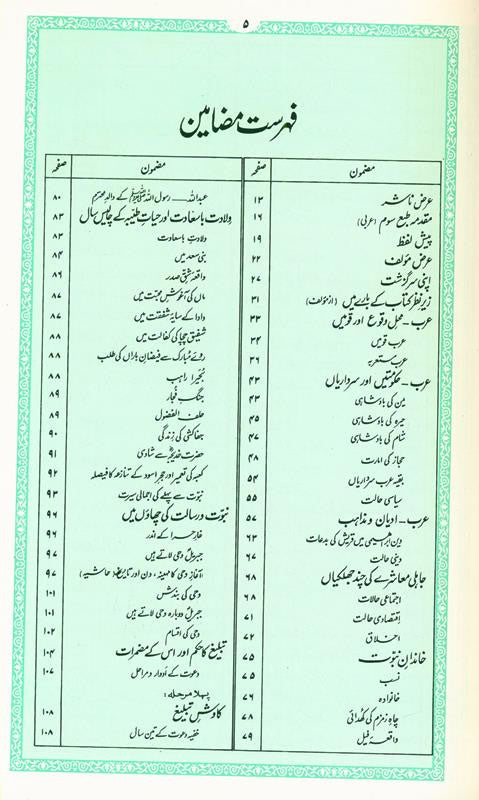 ۵
فہرست مضامین
مضمون صفحہ
عرض ناشر ۱۳
مقدمہ طبع سوم (عربی) ۱۶
پیش لفظ ۱۹
عرض مؤلف ۲۲
اپنی سرگزشت ۲۷
زیر نظر کتاب کے بارے میں (از مؤلف) ۳۱
عرب - محل وقوع اور قومیں ۳۳
عرب قومیں ۳۴
عرب مستعربہ ۳۶
عرب - حکومتیں اور سرداریاں ۴۳
یمن کی بادشاہی ۴۳
حیرہ کی بادشاہی ۴۵
شام کی بادشاہی ۴۷
حجاز کی امارت ۴۸
بقیہ عرب سرداریاں ۵۴
سیاسی حالت ۵۵
عرب - ادیان و مذاہب ۵۷
دین ابراہیمی میں قریش کی بدعات ۶۳
دینی حالت ۶۷
جاہلی معاشرے کی چند جھلکیاں ۶۸
اجتماعی حالات ۶۸
اقتصادی حالت ۷۱
اخلاق ۷۲
خاندان نبوت ۷۵
نسب ۷۵
خانوادہ ۷۶
چاہ زمزم کی کھدائی ۷۸
واقعہ فیل ۷۹
مضمون صفحہ
عبداللہ — رسول اللہ ﷺ کے والد محترم ۸۰
ولادت باسعادت اور حیات طیبہ کے چالیس سال ۸۳
ولادت باسعادت ۸۳
بنی سعد میں ۸۴
واقعہ شق صدر ۸۶
ماں کی آغوش محبت میں ۸۷
دادا کے سایہ شفقت میں ۸۷
شفیق چچا کی کفالت میں ۸۸
روئے مبارک سے فیضان باراں کی طلب ۸۸
بحیرا راہب ۸۸
جنگ فجار ۸۹
حلف الفضول ۸۹
جفاکشی کی زندگی ۹۰
حضرت خدیجہؓ سے شادی ۹۱
کعبہ کی تعمیر اور حجر اسود کے تنازعہ کا فیصلہ ۹۲
نبوت سے پہلے کی اجمالی سیرت ۹۳
نبوت و رسالت کی چھاؤں میں ۹۶
غار حرا کے اندر ۹۶
جبریل وحی لاتے ہیں ۹۷
آغاز وحی کا مہینہ، دن اور تاریخ (حاشیہ) ۹۷
وحی کی بندش ۱۰۱
جبریل دوبارہ وحی لاتے ہیں ۱۰۱
وحی کی اقسام ۱۰۲
تبلیغ کا حکم اور اس کے مضمرات ۱۰۴
دعوت کے ادوار و مراحل ۱۰۷
پہلا مرحلہ:
کاوش تبلیغ ۱۰۸
خفیہ دعوت کے تین سال ۱۰۸